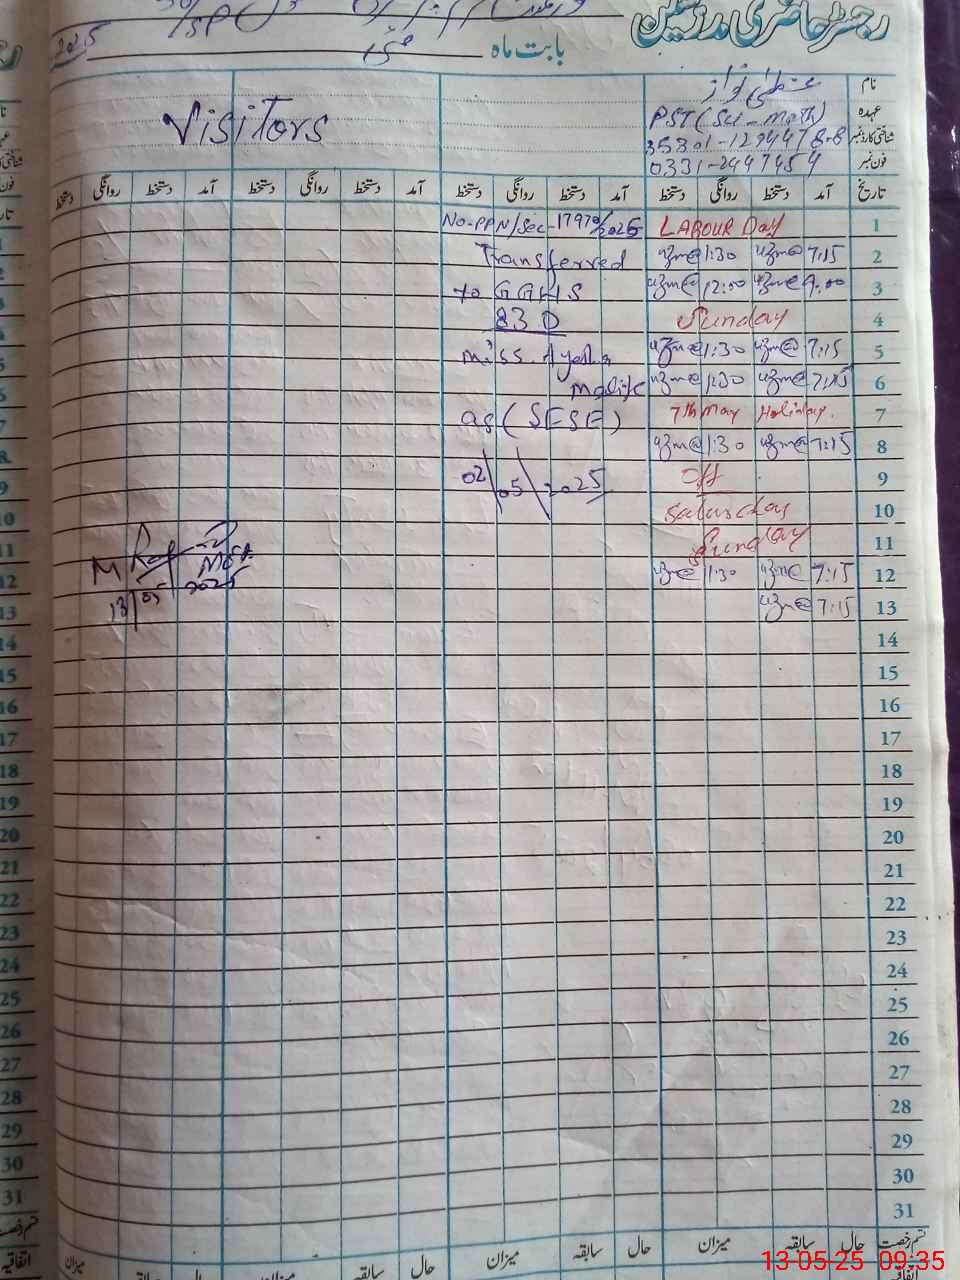 رجسٹر حاضری مدرسین
بابت ماہ مئی 2025
نام عظمیٰ نواز
عہدہ PST (Sci - Math)
شناختی کارڈ نمبر
فون نمبر 0331-2447454
Visitors
تاریخ آمد دستخط روانگی دستخط آمد دستخط روانگی دستخط آمد دستخط روانگی دستخط آمد دستخط روانگی دستخط
1 LABOUR Day
2 7:15 uzma@ 1:30 uzma@
3 9:00 uzma@ 12:00 uzma@
4 Sunday
5 7:15 uzma@ 1:30 uzma@
6 7:15 uzma@ 1:30 uzma@
7 7th May Holiday
8 7:15 uzma@ 1:30 uzma@
9 Off
10 Saturday
11 Sunday
12 7:15 uzma@ 1:30 uzma@
13 7:15 uzma@
14
15
16
17
18
19
20
21
22
23
24
25
26
27
28
29
30
31
Transferred
to GGHS
83 D
Miss Ayesha
Malik
as (SESE)
02/05/2025
13/05/2025
قسم رخصت حال سابقہ میزان حال سابقہ میزان حال سابقہ میزان
اتفاقیہ
13-05-25 09:35